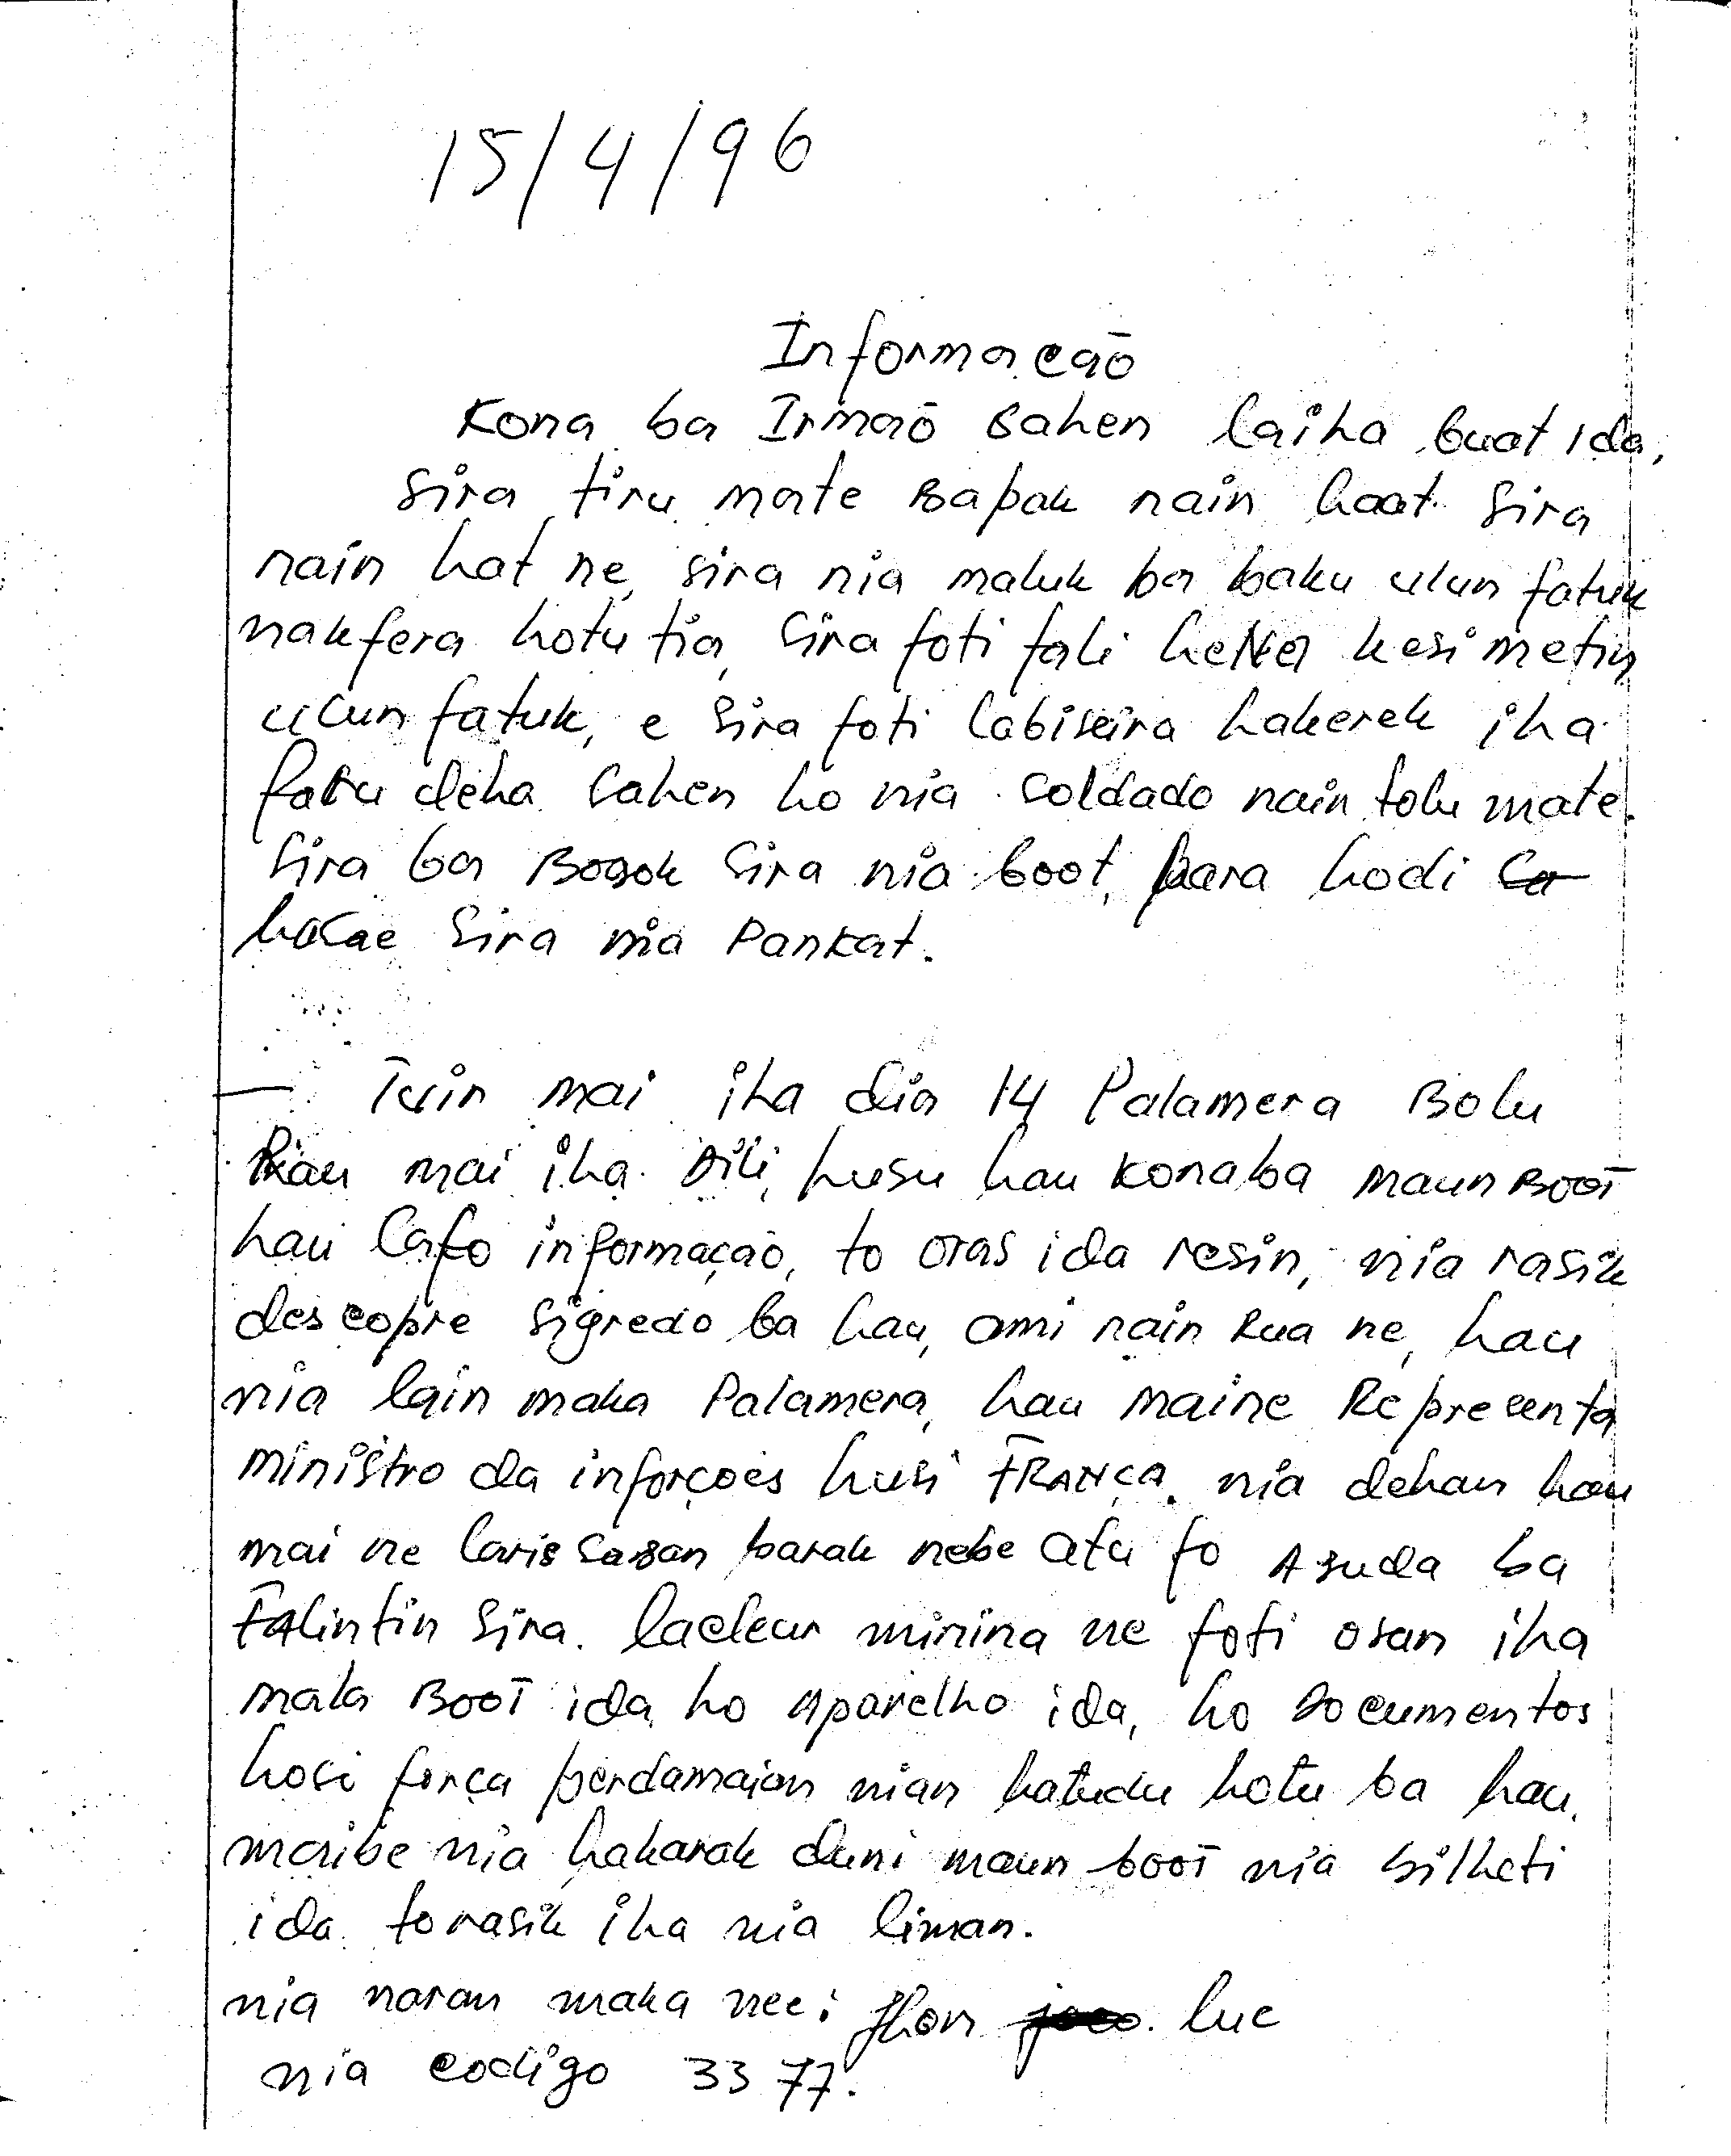 15/4/96
Informação
Kona ba Irmaõ Sahen laiha buat ida,
Sira tiru mate Bapak nain haat Sira
nain hat ne, sira nia maluk ba baku ulun fatuk
nakfera hotu tia, Sira foti fali heNa kesi metin
ulun fatuk, e Sira foti labiseira hakerek iha
fatu deha Sahen ho nia soldado nain tolu mate.
Sira ba Bosok Sira nia boot, para hodi
hasae Sira nia Pankat.
— Tuir mai iha dia 14 Palamera Bolu
hau mai iha Dili, husu hau kona ba maun Boot
hau Lafo informação, to oras ida resin, nia rasik
descopre Sigredo ba hau, ami nain Rua ne, hau
nia lain maka Palamera, hau maine Representa
ministro da inforçoes husi FRANÇA. nia dehan hau
mai ne loris sasan barak nebe atu fo Asuda ba
FAlintin Sira. lacleur minina ne foti osan iha
mala Boot ida ho aparelho ida, ho Documentos
hosi força perdamaian nian hatudu hotu ba hau.
maibe nia hakarak duni maun boot nia bilheti
ida to rasik iha nia liman.
nia naran maka nee: Jhon luc
nia codigo 3377.